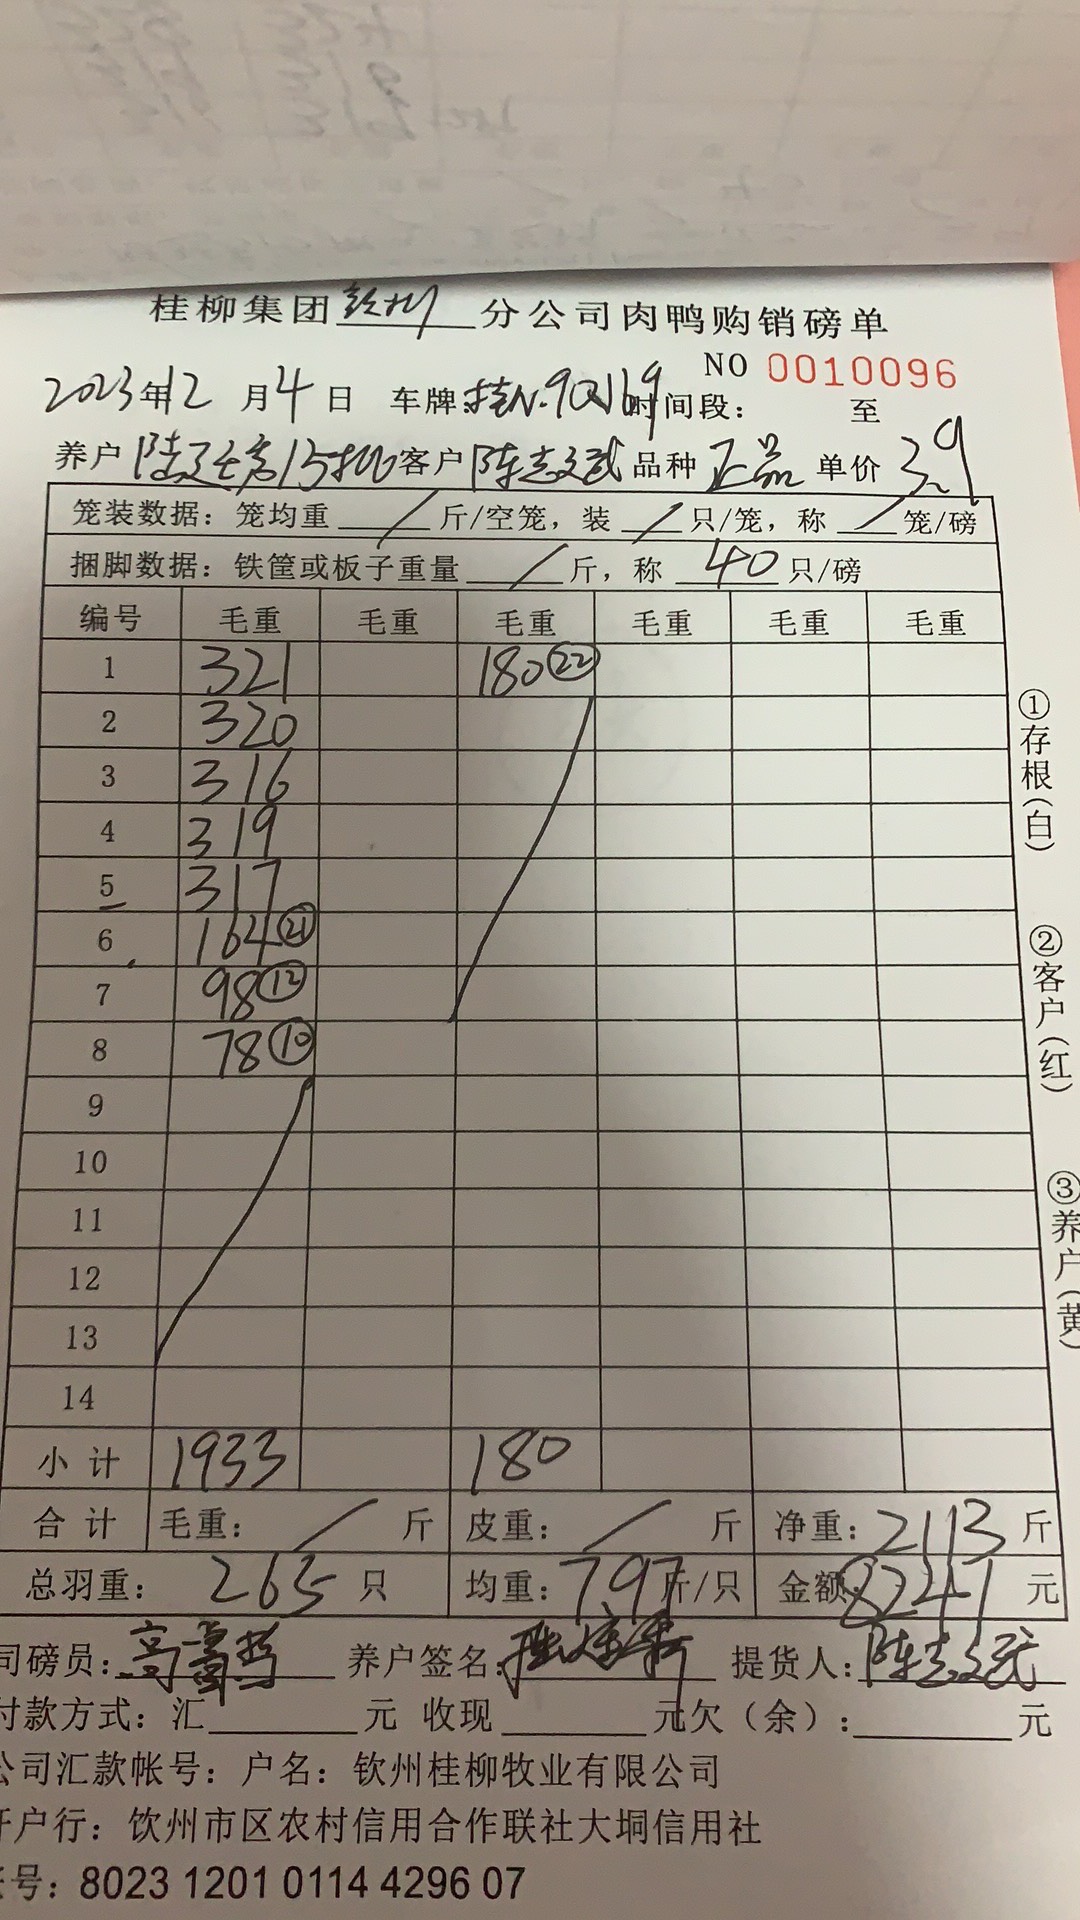 桂柳集团钦州分公司肉鸭购销磅单
NO 0010096
2023年12月4日 车牌: 时间段: 至
养户 15批 客户 陈志武 品种 正品 单价 3.9
笼装数据：笼均重 / 斤/空笼，装 / 只/笼，称 / 笼/磅
捆脚数据：铁筐或板子重量 / 斤，称 40 只/磅
编号 毛重 毛重 毛重 毛重 毛重 毛重
1 321 180㉒
2 320
3 316
4 319
5 317
6 164㉑
7 98⑫
8 78⑩
9
10
11
12
13
14
小计 1933 180
合计 毛重： / 斤 皮重： / 斤 净重：2113 斤
总羽重： 265 只 均重：797斤/只 金额：8241 元
司磅员： 养户签名： 提货人：陈志武
付款方式：汇 元 收现 元欠（余）： 元
公司汇款帐号：户名：钦州桂柳牧业有限公司
开户行：饮州市区农村信用合作联社大垌信用社
帐号：8023 1201 0114 4296 07
①存根（白）
②客户（红）
③养户（黄）